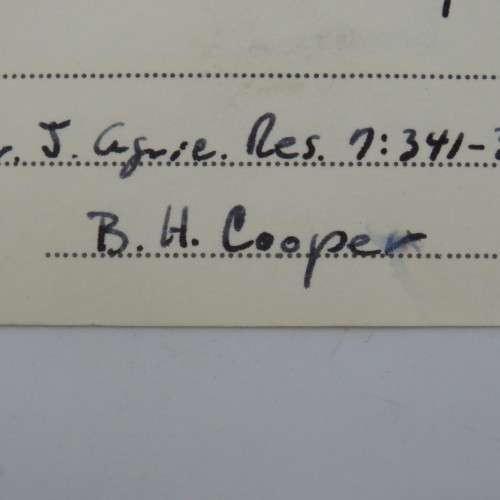 J. Agric. Res. 7:341-
B. H. Cooper